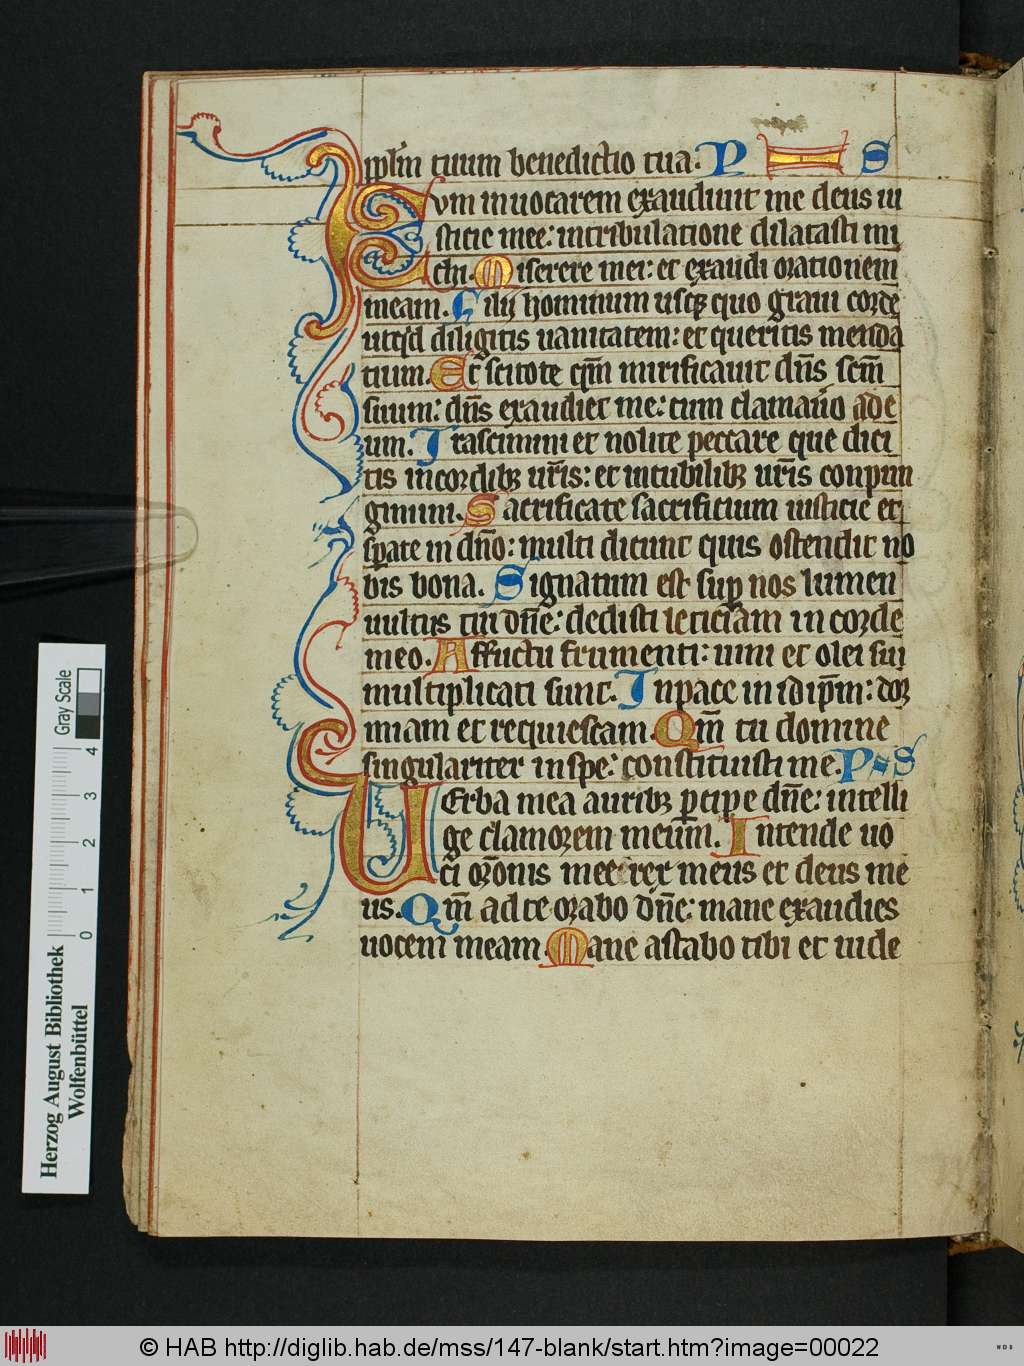 pplm tuum benedictio tua. P S
Cvm inuocarem exaudiuit me deus iu
sticie mee: in tribulatione dilatasti mi
chi. Miserere mei: et exaudi orationem
meam. Filij hominum usq; quo graui corde
utqd diligitis uanitatem: et queritis menda
tium. Et scitote qm mirificauit dns scm
suum: dns exaudiet me: cum clamauo ade
um. Irascimini et nolite peccare que dici
tis in cordib; uris: et in cubilib; uris conpun
gimini. Sacrificate sacrificium iusticie et
spate in dno: multi dicunt quis ostendit no
bis bona. Signatum est sup nos lumen
uultus tui dne: dedisti leticiam in corde
meo. A ffructu frumenti: uini et olei sui
multiplicati sunt. In pace in idipm: dor
miam et requiescam. Qm tu domine
singulariter in spe: constituisti me. PS
VErba mea aurib; pcipe dne: intelli
ge clamorem meum. Intende uo
ci oronis mee rex meus et deus me
us. Qm ad te orabo dne: mane exaudies
uocem meam. Mane astabo tibi et uide
Gray Scale
4 3 2 1 0
Herzog August Bibliothek
Wolfenbüttel
© HAB http://diglib.hab.de/mss/147-blank/start.htm?image=00022